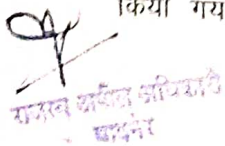 किया गय
राजस्व अपील अधिकारी
बाड़मेर